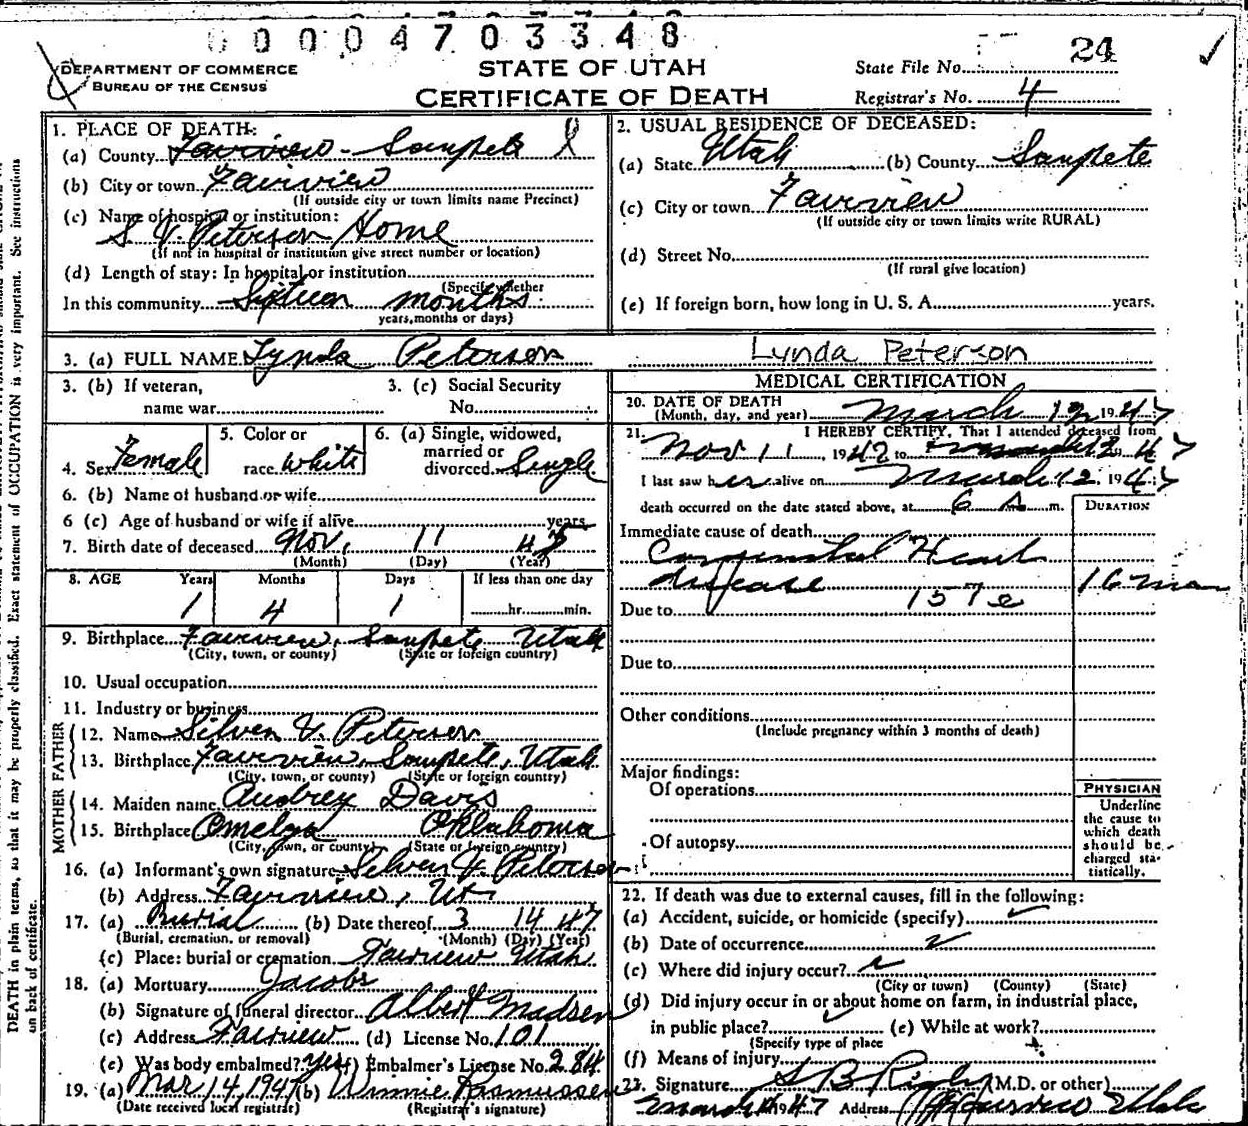 00004703348
24
DEPARTMENT OF COMMERCE
BUREAU OF THE CENSUS
STATE OF UTAH
CERTIFICATE OF DEATH
State File No.
Registrar's No. 4
1. PLACE OF DEATH:
(a) County Fairview - Sanpete
(b) City or town Fairview
(If outside city or town limits name Precinct)
(c) Name of hospital or institution:
S V. Peterson Home
(If not in hospital or institution give street number or location)
(d) Length of stay: In hospital or institution
(Specify whether
In this community Sixteen months
years, months or days)
2. USUAL RESIDENCE OF DECEASED:
(a) State Utah (b) County Sanpete
(c) City or town Fairview
(If outside city or town limits write RURAL)
(d) Street No.
(If rural give location)
(e) If foreign born, how long in U. S. A. years.
3. (a) FULL NAME Lynda Peterson Lynda Peterson
3. (b) If veteran,
name war
3. (c) Social Security
No.
4. Sex Female
5. Color or
race White
6. (a) Single, widowed,
married or
divorced Single
6. (b) Name of husband or wife
6 (c) Age of husband or wife if alive years
7. Birth date of deceased Nov. 11 45
(Month) (Day) (Year)
8. AGE Years Months Days If less than one day
1 4 1 hr. min.
9. Birthplace Fairview, Sanpete Utah
(City, town, or county) (State or foreign country)
10. Usual occupation
11. Industry or business
FATHER
12. Name Silven V. Peterson
13. Birthplace Fairview, Sanpete, Utah
(City, town, or county) (State or foreign country)
MOTHER
14. Maiden name Audrey Davis
15. Birthplace Oklahoma
(City, town, or county) (State or foreign country)
16. (a) Informant's own signature Silven V. Peterson
(b) Address Fairview, Ut
17. (a) Burial (b) Date thereof 3 14 47
(Burial, cremation, or removal) (Month) (Day) (Year)
(c) Place: burial or cremation Fairview Utah
18. (a) Mortuary Jacobs
(b) Signature of funeral director Albert Madsen
(c) Address Fairview (d) License No. 101
(e) Was body embalmed? yes (f) Embalmer's License No. 284
19. (a) Mar 14, 1947 (b) Winnie Rasmussen
(Date received local registrar) (Registrar's signature)
MEDICAL CERTIFICATION
20. DATE OF DEATH
(Month, day, and year) March 12 1947
21. I HEREBY CERTIFY, That I attended deceased from
Nov 11, 1942 to 12 1947
I last saw her alive on March 12 1947
death occurred on the date stated above, at 6 A m.
DURATION
Immediate cause of death
Congenital Heart
disease 16 mon
157e
Due to
Due to
Other conditions
(Include pregnancy within 3 months of death)
Major findings:
Of operations
Of autopsy
PHYSICIAN
Underline
the cause to
which death
should be
charged sta-
tistically.
22. If death was due to external causes, fill in the following:
(a) Accident, suicide, or homicide (specify)
(b) Date of occurrence
(c) Where did injury occur?
(City or town) (County) (State)
(d) Did injury occur in or about home on farm, in industrial place,
in public place? (e) While at work?
(Specify type of place
(f) Means of injury
23. Signature S B (M.D. or other)
March 1947 Address Fairview Utah
DEATH in plain terms, so that it may be properly classified. Exact statement of OCCUPATION is very important. See instructions
on back of certificate.